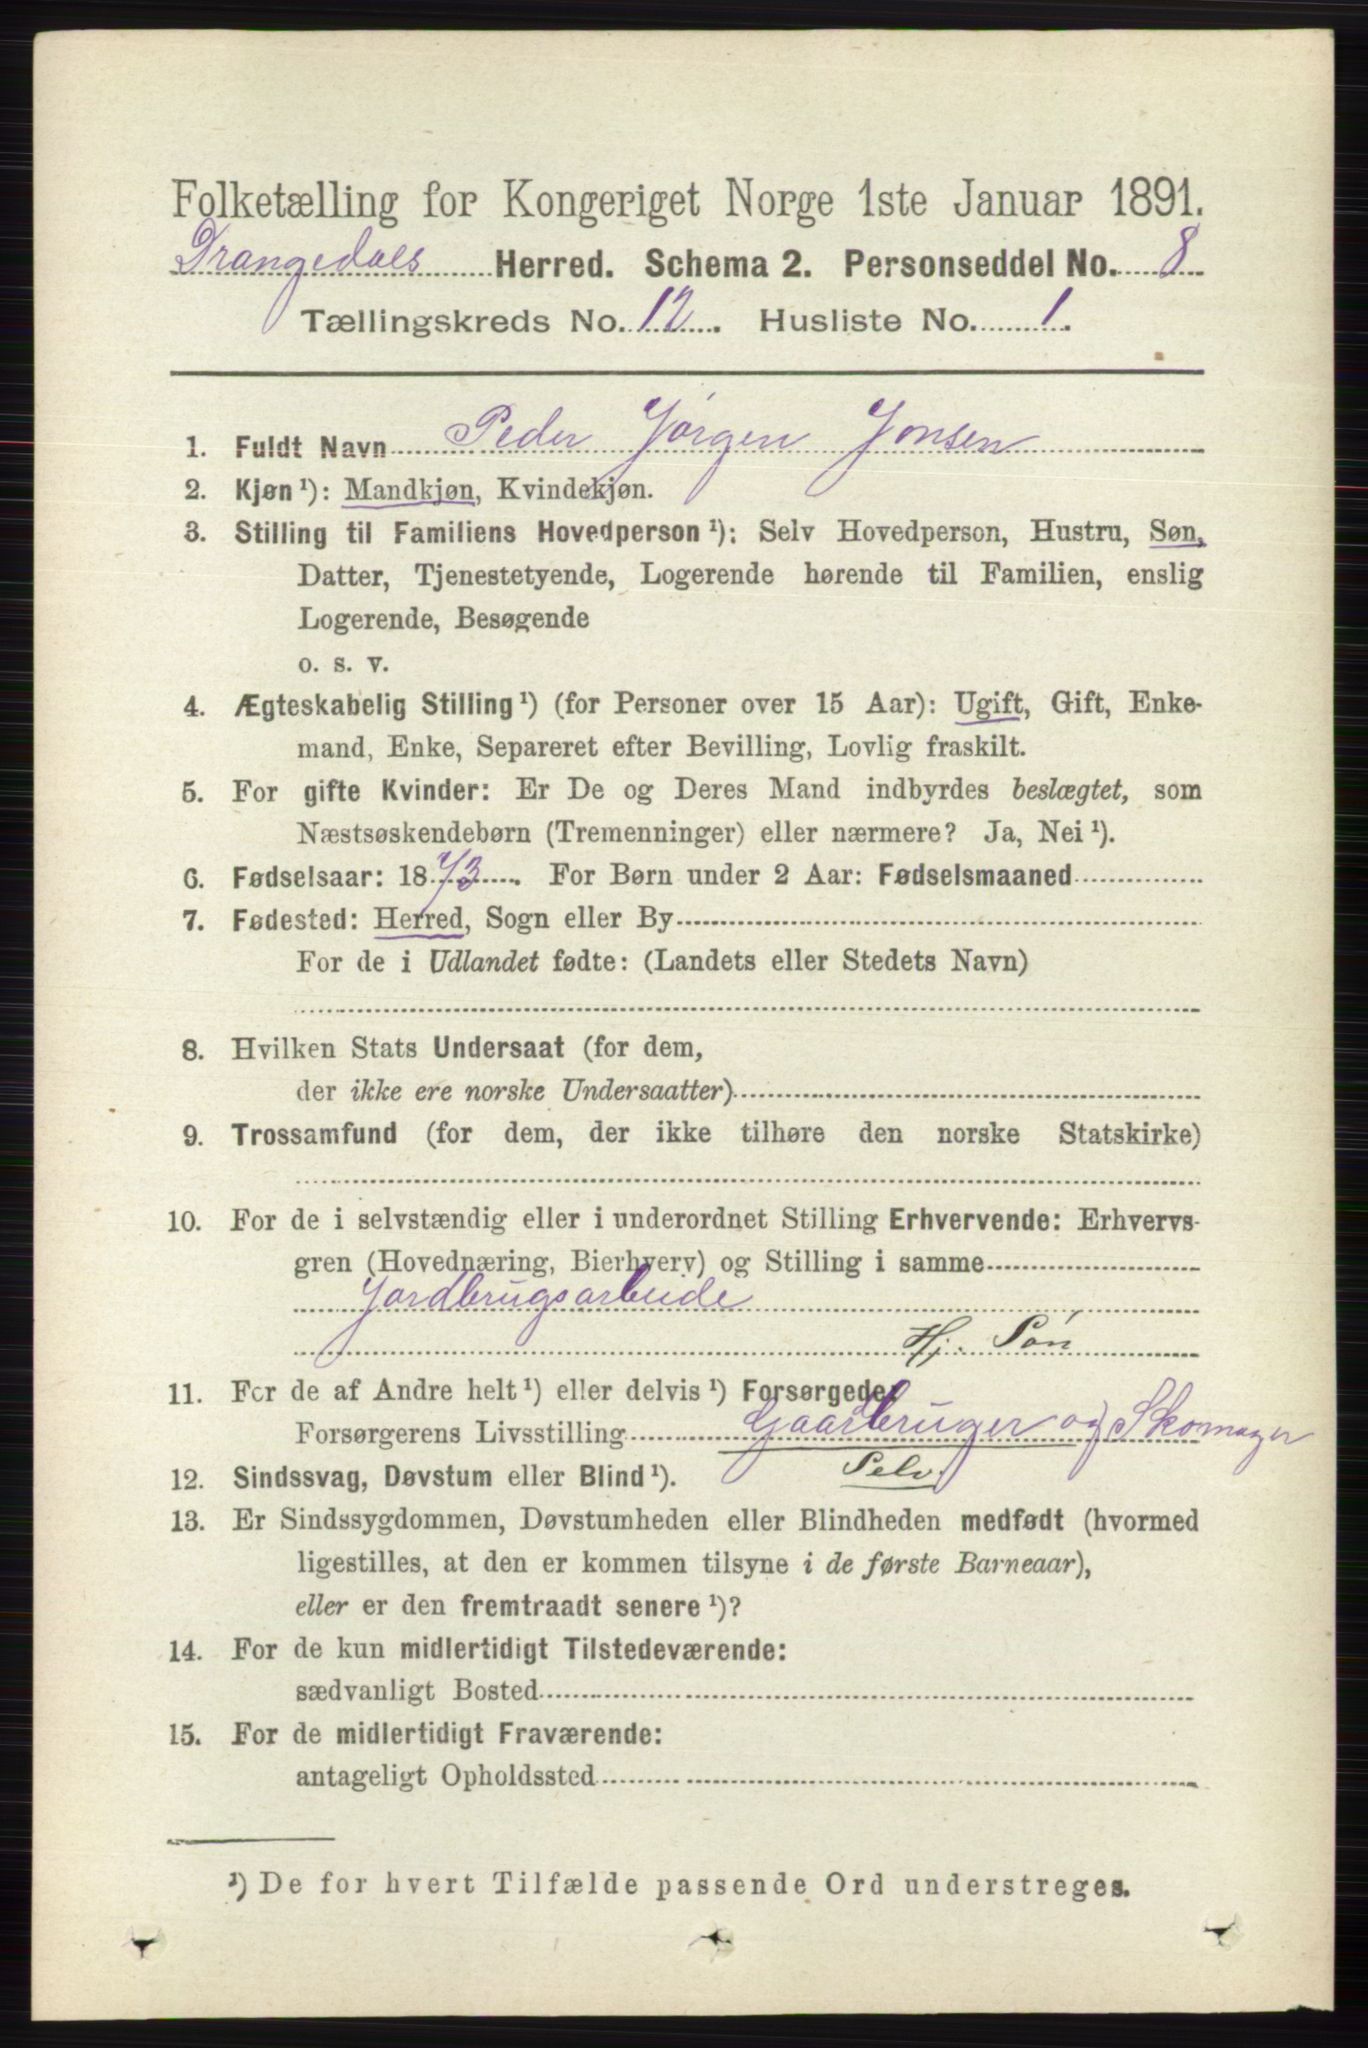 Folketælling for Kongeriget Norge 1ste Januar 1891.
Drangedals Herred. Schema 2. Personseddel No. 8
Tællingskreds No. 12. Husliste No. 1.
1. Fuldt Navn Peder Jørgen Jonsen
2. Kjøn ¹): Mandkjøn, Kvindekjøn.
3. Stilling til Familiens Hovedperson ¹): Selv Hovedperson, Hustru, Søn,
Datter, Tjenestetyende, Logerende hørende til Familien, enslig
Logerende, Besøgende
o. s. v.
4. Ægteskabelig Stilling ¹) (for Personer over 15 Aar): Ugift, Gift, Enke-
mand, Enke, Separeret efter Bevilling, Lovlig fraskilt.
5. For gifte Kvinder: Er De og Deres Mand indbyrdes beslægtet, som
Næstsøskendebørn (Tremenninger) eller nærmere? Ja, Nei ¹).
6. Fødselsaar: 1873. For Børn under 2 Aar: Fødselsmaaned
7. Fødested: Herred, Sogn eller By
For de i Udlandet fødte: (Landets eller Stedets Navn)
8. Hvilken Stats Undersaat (for dem,
der ikke ere norske Undersaatter)
9. Trossamfund (for dem, der ikke tilhøre den norske Statskirke)
10. For de i selvstændig eller i underordnet Stilling Erhvervende: Erhvervs-
gren (Hovednæring, Bierhverv) og Stilling i samme
Jordbrugsarbeide
Hj. Søn
11. For de af Andre helt ¹) eller delvis ¹) Forsørgede:
Forsørgerens Livsstilling Gaarbruger og Skomager
Selv.
12. Sindssvag, Døvstum eller Blind ¹).
13. Er Sindssygdommen, Døvstumheden eller Blindheden medfødt (hvormed
ligestilles, at den er kommen tilsyne i de første Barneaar),
eller er den fremtraadt senere ¹)?
14. For de kun midlertidigt Tilstedeværende:
sædvanligt Bosted
15. For de midlertidigt Fraværende:
antageligt Opholdssted
¹) De for hvert Tilfælde passende Ord understreges.